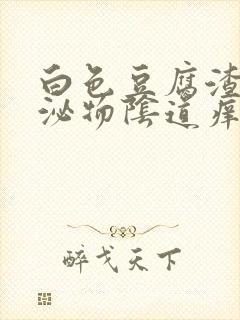 白色豆腐渣
泌物陰道痒
醉戈天下